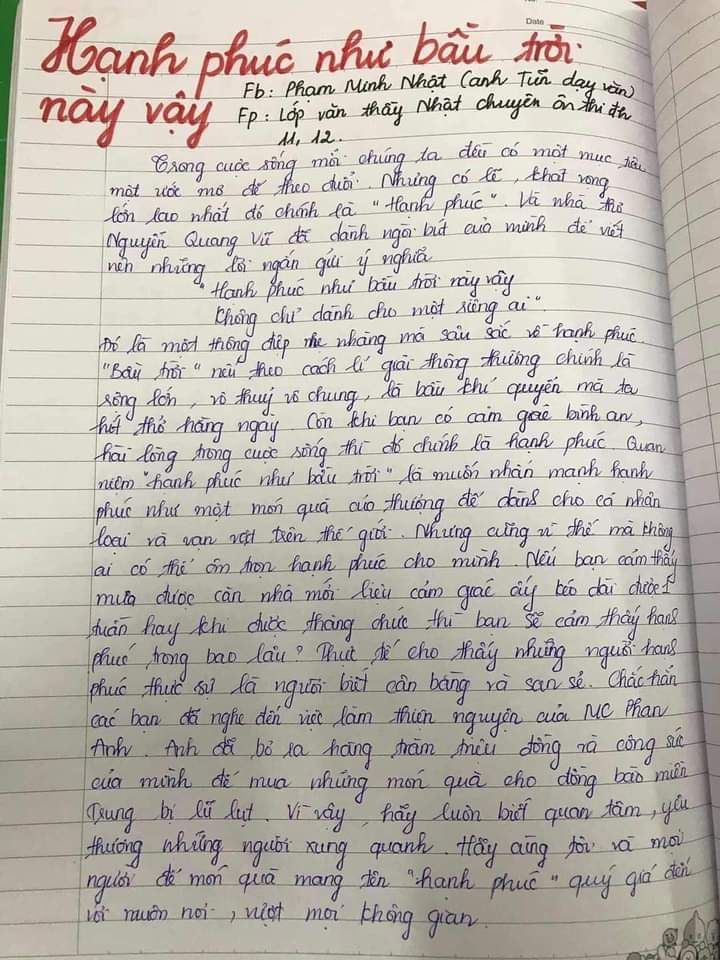 Date
Hạnh phúc như bầu trời
này vậy
Fb: Phạm Minh Nhật (anh Tiến dạy văn)
Fp: Lớp văn thầy Nhật chuyên ôn thi đh
11, 12.
Trong cuộc sống mỗi chúng ta đều có một mục tiêu
một ước mơ để theo đuổi. Nhưng có lẽ, khát vọng
lớn lao nhất đó chính là "Hạnh phúc". Và nhà thơ
Nguyễn Quang Vũ đã dành ngòi bút của mình để viết
nên những lời ngắn gửi ý nghĩa
"Hạnh phúc như bầu trời này vậy
Không chỉ dành cho một riêng ai".
Đó là một thông điệp nhẹ nhàng mà sâu sắc về hạnh phúc.
"Bầu trời" nếu theo cách lí giải thông thường chính là
rộng lớn, vô thuỷ vô chung, là bầu khí quyển mà ta
hít thở hàng ngày. Còn khi bạn có cảm giác bình an,
hài lòng trong cuộc sống thì đó chính là hạnh phúc. Quan
niệm "hạnh phúc như bầu trời" là muốn nhấn mạnh hạnh
phúc như một món quà của thượng đế dành cho cả nhân
loại và vạn vật trên thế giới. Nhưng cũng vì thế mà không
ai có thể ôm trọn hạnh phúc cho mình. Nếu bạn cảm thấy
mua được căn nhà mới liệu cảm giác ấy kéo dài được 1
tuần hay khi được thăng chức thì bạn sẽ cảm thấy hạnh
phúc trong bao lâu? Thực tế cho thấy những người hạnh
phúc thực sự là người biết cân bằng và san sẻ. Chắc hẳn
các bạn đã nghe đến việc làm thiện nguyện của MC Phan
Anh. Anh đã bỏ ra hàng trăm triệu đồng và công sức
của mình để mua những món quà cho đồng bào miền
Trung bị lũ lụt. Vì vậy, hãy luôn biết quan tâm, yêu
thương những người xung quanh. Hãy cùng tôi và mọi
người để món quà mang tên "hạnh phúc" quý giá đến
với muôn nơi, vượt mọi không gian.